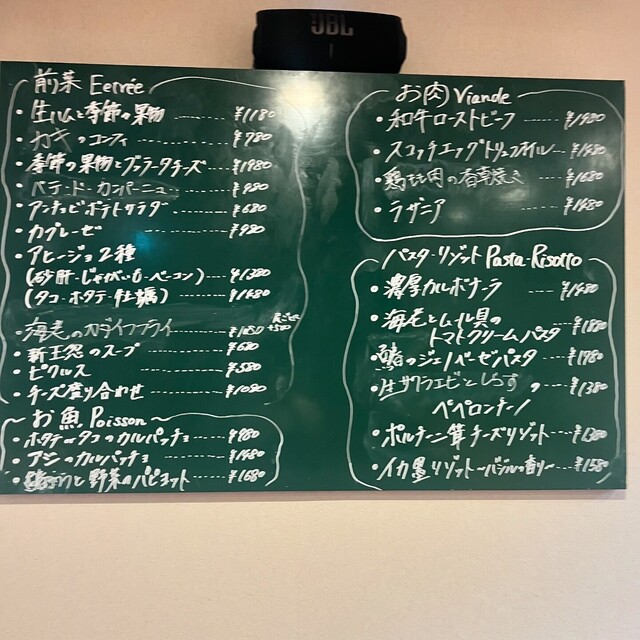 JBL
前菜 Entrée
・生ハムと季節の果物 ------ ¥1180
・カキのコンフィ ------ ¥780
・季節の果物とブッラータチーズ ---- ¥1980
・パテ・ド・カンパーニュ ------ ¥980
・アンチョビポテトサラダ ------ ¥680
・カプレーゼ ------ ¥980
・アヒージョ2種
(砂肝・じゃがいも・ベーコン) ---- ¥1380
(タコ・ホタテ・牡蠣) ------ ¥1480
・海老のカダイフフライ ------ ¥1080 +500
・新玉葱のスープ ------ ¥680
・ピクルス ------ ¥580
・チーズ盛り合わせ ------ ¥1080
お魚 Poisson
・ホタテとタコのカルパッチョ ------ ¥980
・アジのカルパッチョ ------ ¥1480
と野菜のパピヨット ------ ¥1680
お肉 Viande
・和牛ローストビーフ ---- ¥1980
・スコッチエッグトリュフオイル -- ¥1480
・鶏もも肉の香草焼き ---- ¥1680
・ラザニア ------ ¥1480
パスタ・リゾット Pasta・Risotto
・濃厚カルボナーラ ---- ¥1480
・海老とムール貝の
トマトクリームパスタ ---- ¥1880
のジェノベーゼパスタ ---- ¥1980
・生サクラエビとしらすの ---- ¥1380
ペペロンチーノ
・ポルチーニ茸チーズリゾット --- ¥1380
・イカ墨リゾット〜バジルの香り〜 --- ¥1580